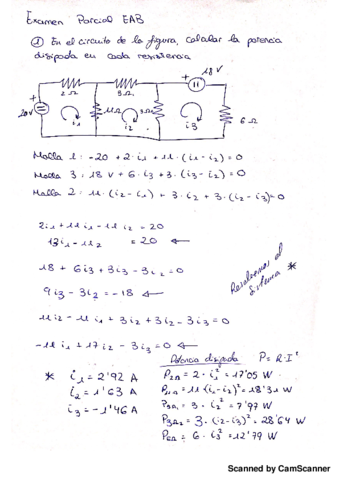 Examen Parcial EAB
① En el circuito de la figura, calcular la potencia
disipada en cada resistencia
18 V
2Ω 3Ω
20V i1 11Ω i2 3Ω i3 6Ω
Malla 1: -20 + 2·i1 + 11·(i1-i2) = 0
Malla 3: 18 V + 6·i3 + 3·(i3-i2) = 0
Malla 2: 11·(i2-i1) + 3·i2 + 3·(i2-i3) = 0
2i1 + 11i1 - 11i2 = 20
13i1 - 11i2 = 20 ←
18 + 6i3 + 3i3 - 3i2 = 0
9i3 - 3i2 = -18 ←
Resolvemos el
sistema *
11i2 - 11i1 + 3i2 + 3i2 - 3i3 = 0
-11i1 + 17i2 - 3i3 = 0 ←
Potencia disipada P = R·I²
* i1 = 2'92 A
i2 = 1'63 A
i3 = -1'46 A
P2Ω = 2·i1² = 17'05 W
P11Ω = 11(i1-i2)² = 18'31 W
P3Ω1 = 3·i2² = 7'97 W
P3Ω2 = 3·(i2-i3)² = 28'64 W
P6Ω = 6·i3² = 12'79 W
Scanned by CamScanner